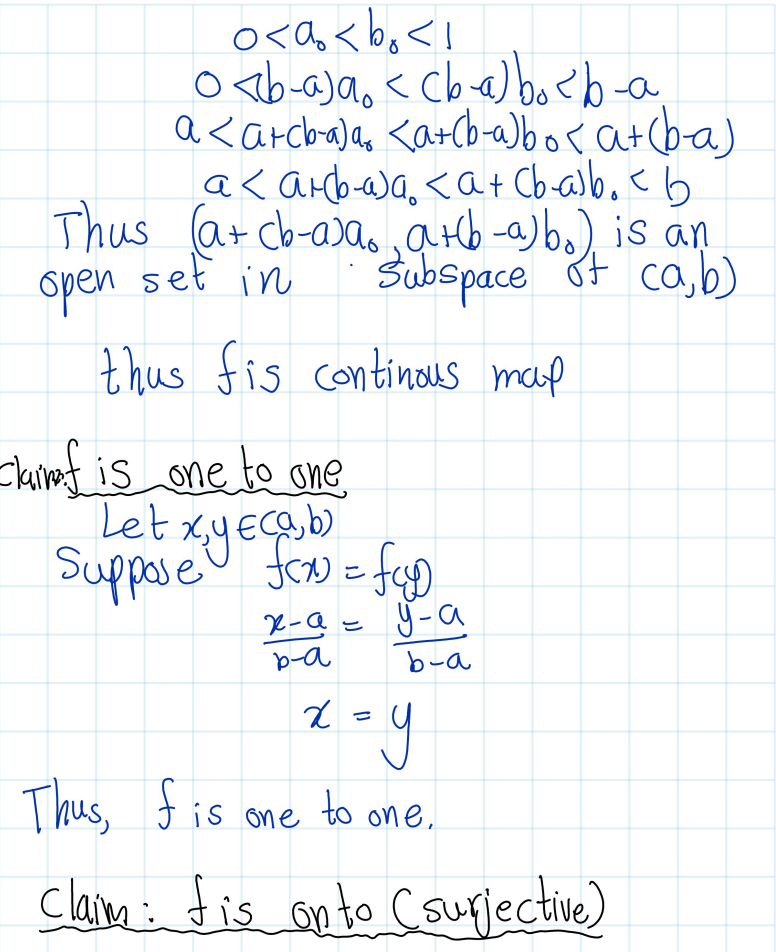 0<a₀<b₀<1
0<(b-a)a₀<(b-a)b₀<b-a
a<a+(b-a)a₀<a+(b-a)b₀<a+(b-a)
a<a+(b-a)a₀<a+(b-a)b₀<b
Thus (a+(b-a)a₀, a+(b-a)b₀) is an
open set in subspace of (a,b)
thus f is continous map
Claim: f is one to one
Let x,y∈(a,b)
Suppose f(x) = f(y)
x-a/b-a = y-a/b-a
x = y
Thus, f is one to one.
Claim: f is onto (surjective)